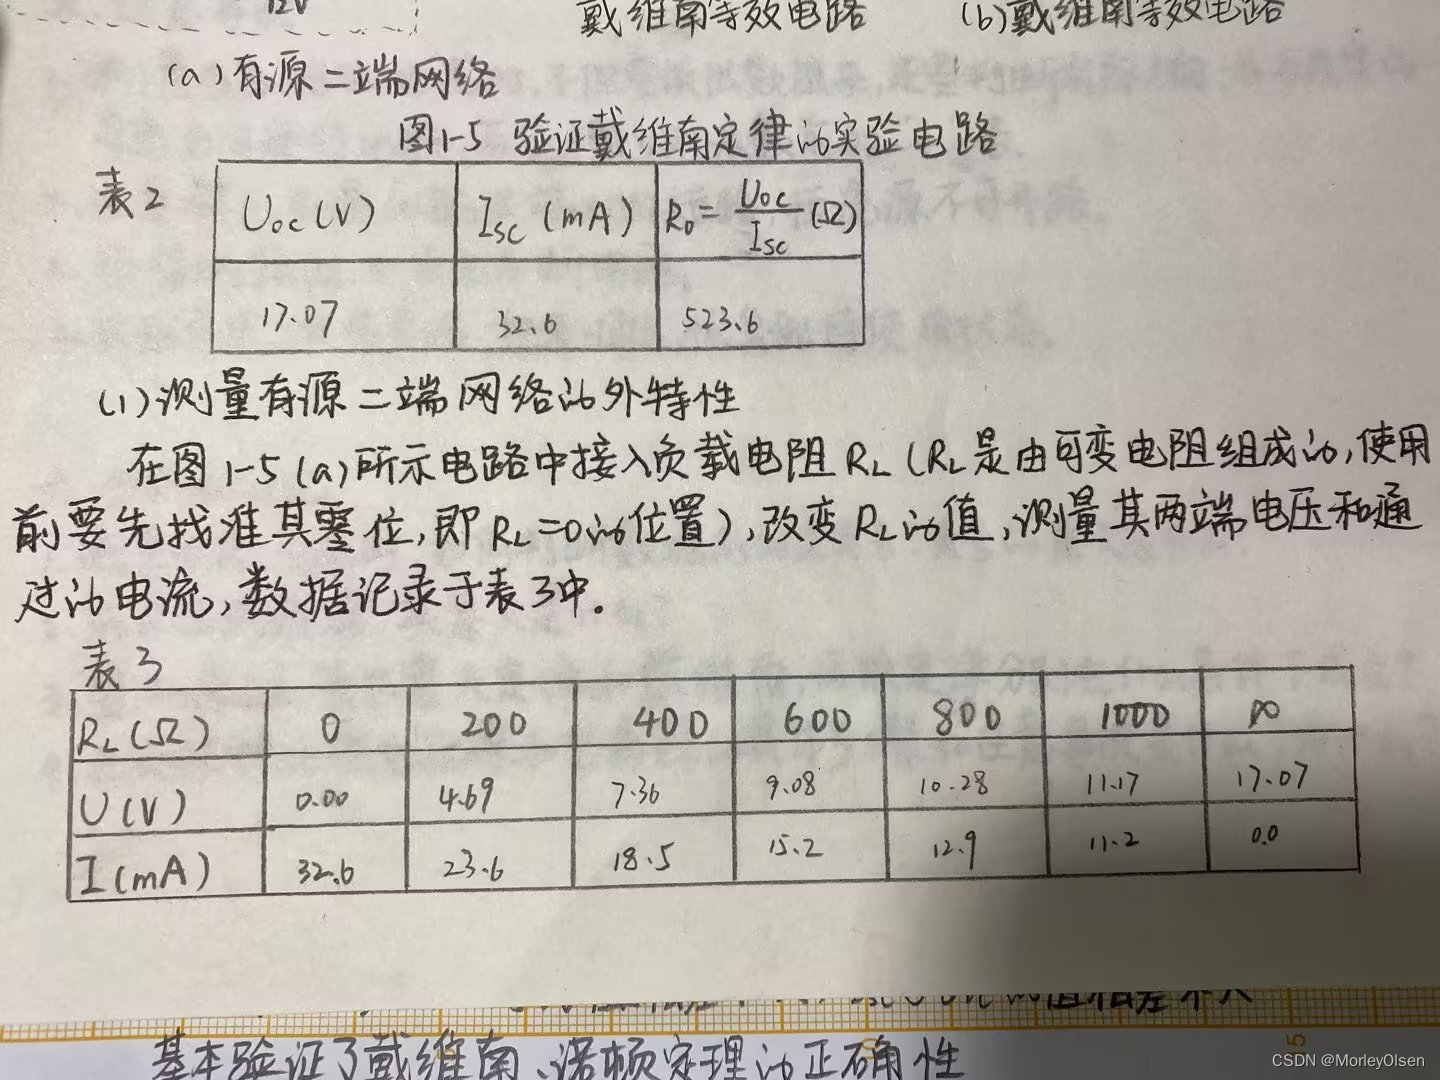 12V
戴维南等效电路 (b)戴维南等效电路
(a)有源二端网络
图1-5 验证戴维南定律的实验电路
表2
Uoc(V) Isc(mA) R0=Uoc/Isc(Ω)
17.07 32.6 523.6
(1)测量有源二端网络的外特性
在图1-5(a)所示电路中接入负载电阻RL(RL是由可变电阻组成的,使用
前要先找准其零位,即RL=0的位置),改变RL的值,测量其两端电压和通
过的电流,数据记录于表3中.
表3
RL(Ω) 0 200 400 600 800 1000 ∞
U(V) 0.00 4.69 7.36 9.08 10.28 11.17 17.07
I(mA) 32.6 23.6 18.5 15.2 12.9 11.2 0.0
值相差不大
基本验证了戴维南、诺顿定理的正确性
5
CSDN @MorleyOlsen